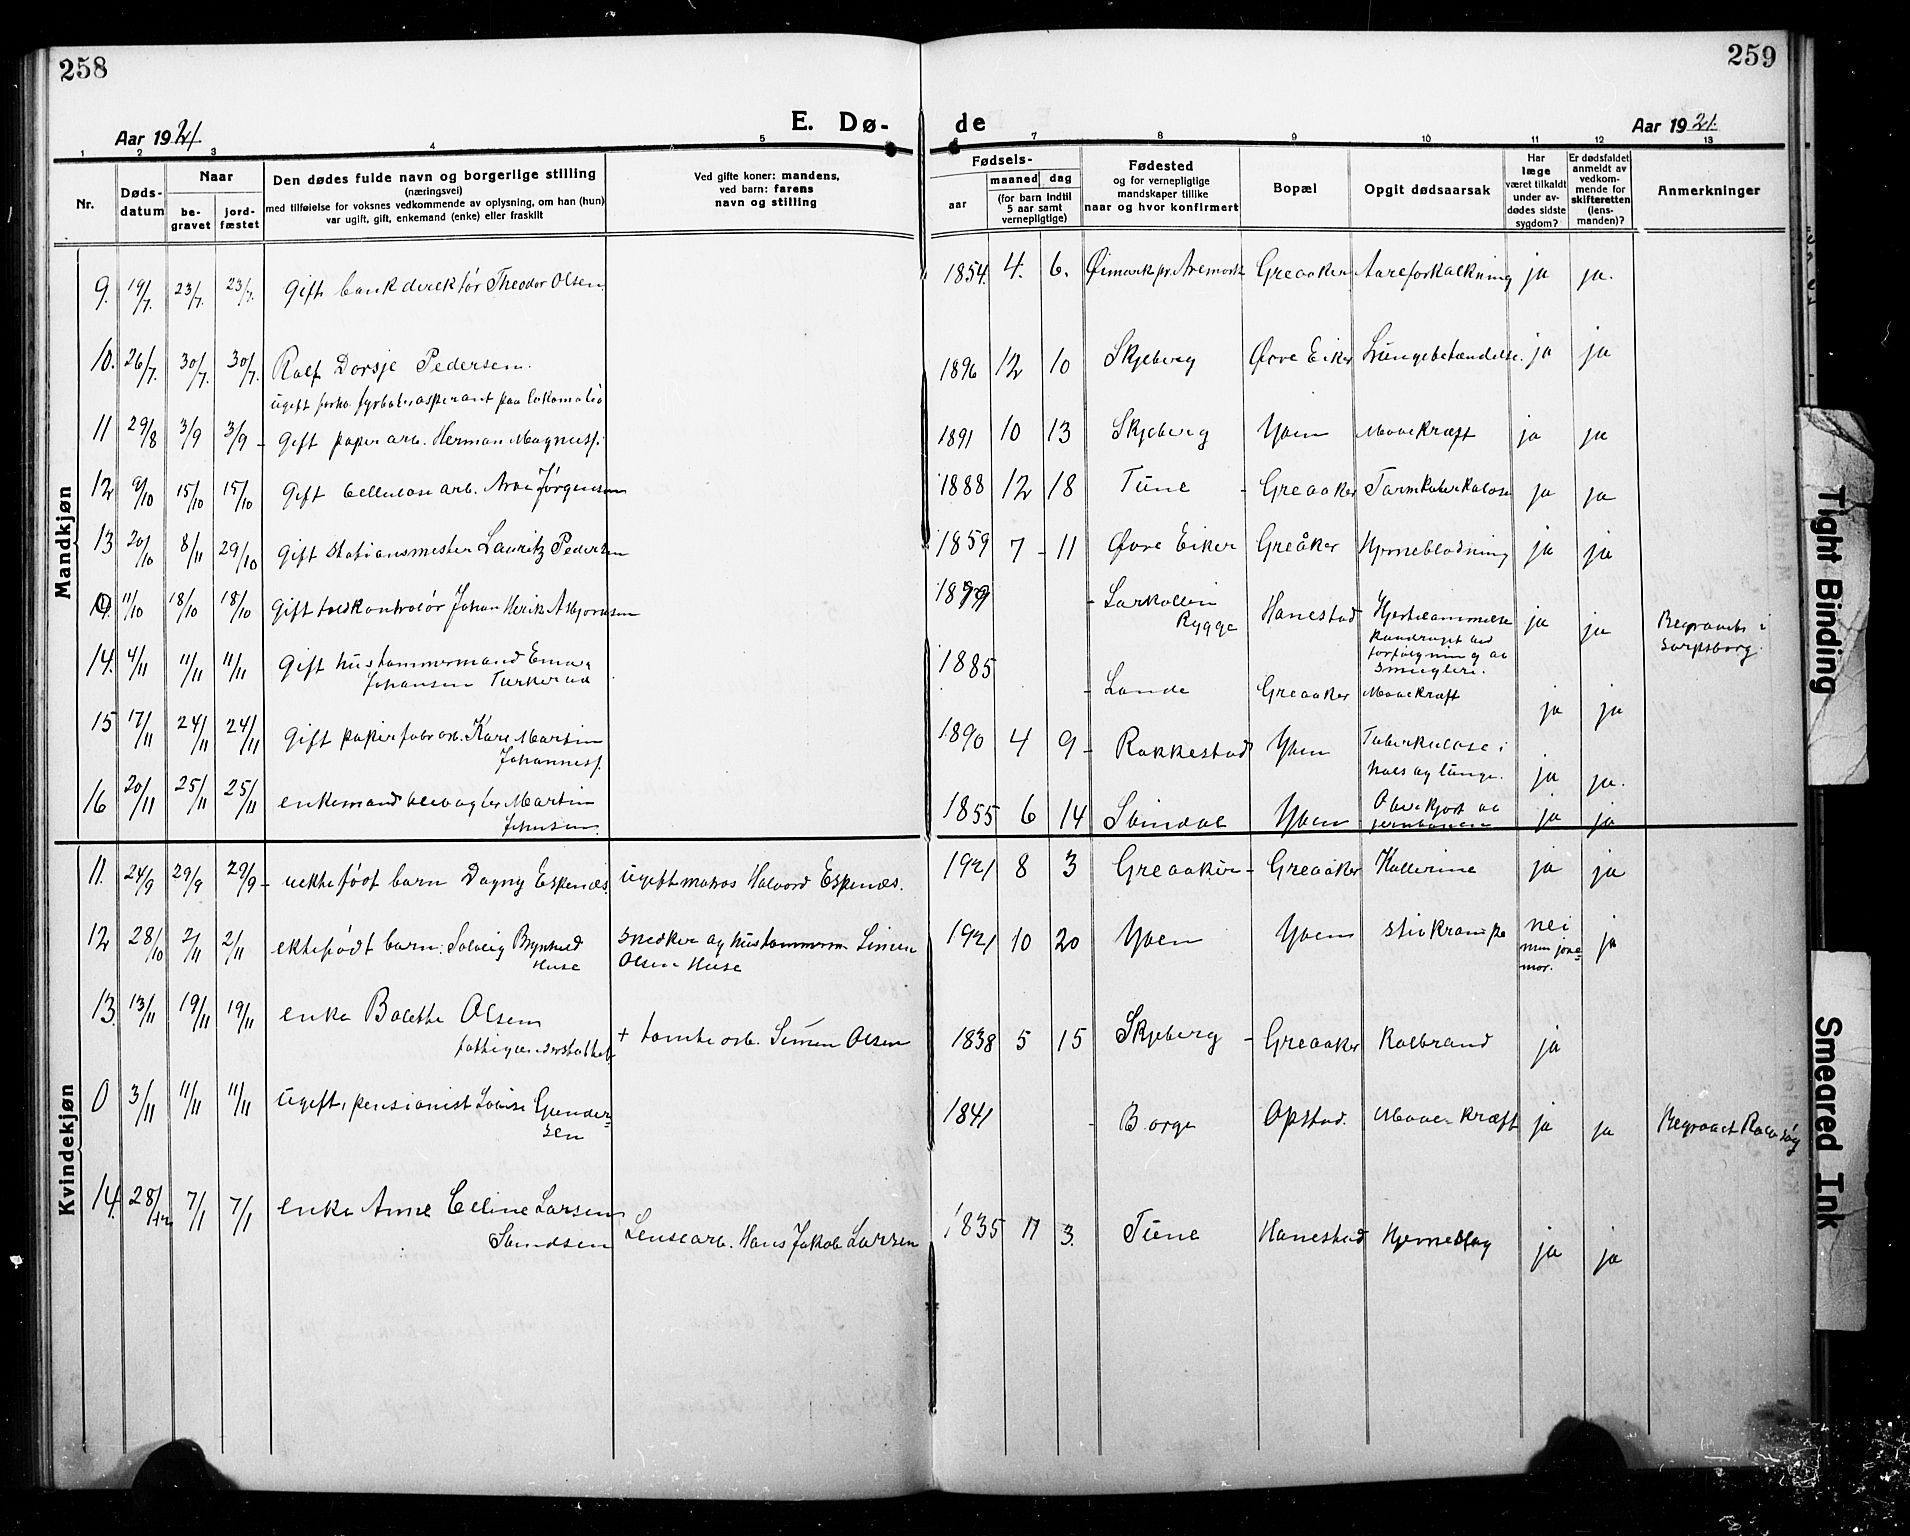 258
259
E. Dø- de
Aar 1921.
Aar 1921.
1 2 3 4 5 6 7 8 9 10 11 12 13
Nr.
Døds-
datum
Naar
be-
gravet
jord-
fæstet
Den dødes fulde navn og borgerlige stilling
(næringsvei)
med tilføielse for voksnes vedkommende av oplysning, om han (hun)
var ugift, gift, enkemand (enke) eller fraskilt
Ved gifte koner: mandens,
ved barn: farens
navn og stilling
Fødsels-
aar
maaned dag
(for barn indtil
5 aar samt
vernepligtige)
Fødested
og for vernepligtige
mandskaper tillike
naar og hvor konfirmert
Bopæl
Opgit dødsaarsak
Har
læge
været tilkaldt
under av-
dødes sidste
sygdom?
Er dødsfaldet
anmeldt av
vedkom-
mende for
skifteretten
(lens-
manden)?
Anmerkninger
Mandkjøn
9. 19/7. 23/7. 23/7. Gift bankdirektør Theodor Olsen. 1854. 4. 6. Øimark pr. Aremark Greaaker Aareforkalkning ja ja.
10. 26/7. 30/7. 30/7. Rolf Dorsje Pedersen. 1896 12 10 Skjeberg Øvre Eiker Lungebetændelse. ja ja
ugift fyrbøteraspirant paa lokomotiv
11 29/8 3/9 3/9 - Gift papirarb. Herman Magnusf. 1891 10 13 Skjeberg Yven Mavekræft ja ja
12 9/10 15/10 15/10 Gift Cellulosearb. Jørgensen 1888 12 18 Tune - Greaaker Tarmtuberkulose ja ja
13 20/10 8/11 29/10 Gift stationsmester Lauritz Pedersen 1859 7 - 11 Øvre Eiker Greåker Hjerneblødning ja ja
0. 11/10 18/10 18/10 Gift toldkontrolør Johan Henrik Asbjørnsen - Larkollen
Rygge Hanestad Hjertelammelse
ved
forfølgning av
smuglere. ja ja Begravet i
Sarpsborg.
14. 4/11 11/11 11/11 Gift hustømmermand
Johansen 1885 - Lande Greaaker Mavekræft ja ja
15 17/11 24/11 24/11 Gift papirfabr. arb. Karl Martin
Johannesf. 1890 4 9 - Rakkestad Yven Tuberkulose i
hals og lunge. ja ja.
16 20/11 25/11 25/11 enkemand Martin
Johnsen. 1855 6 14 Yven Overkjørt av
jernbanen ja ja
Kvindekjøn
11. 24/9 29/9 29/9 - uekte født barn Dagny Espenæs. ugift matros Halvord Espenæs. 1921 8 3 Greaaker - Greaaker Kollerine ja ja
12 28/10 2/11 2/11 ektefødt barn: Solveig Brynhild
Huse snedker og hustømmerm. Simen
Olsen Huse 1921 10 20 Yven Yven Stivkrampe nei
men jord-
mor. ja
13. 13/11 19/11 19/11 enke Bolette Olsen
fattigunderstøttet + tomtearb. Simen Olsen 1838 5 15 Skjeberg - Greaaker Kolbrand ja
0 3/11 11/11 11/11 ugift, pensionist Lovise Gunder-
sen 1841 - Borge Opstad. Mave-Kræft ja ja Begravet Rolvsøy
14. 28/12 7/1 7/1 enke Anne Celine Larsen
Sandsen Lensearb. Hans Jakob Larsen 1835 11 3. Tune Hanestad Hjerneslag ja ja
Tight Binding
Smeared Ink